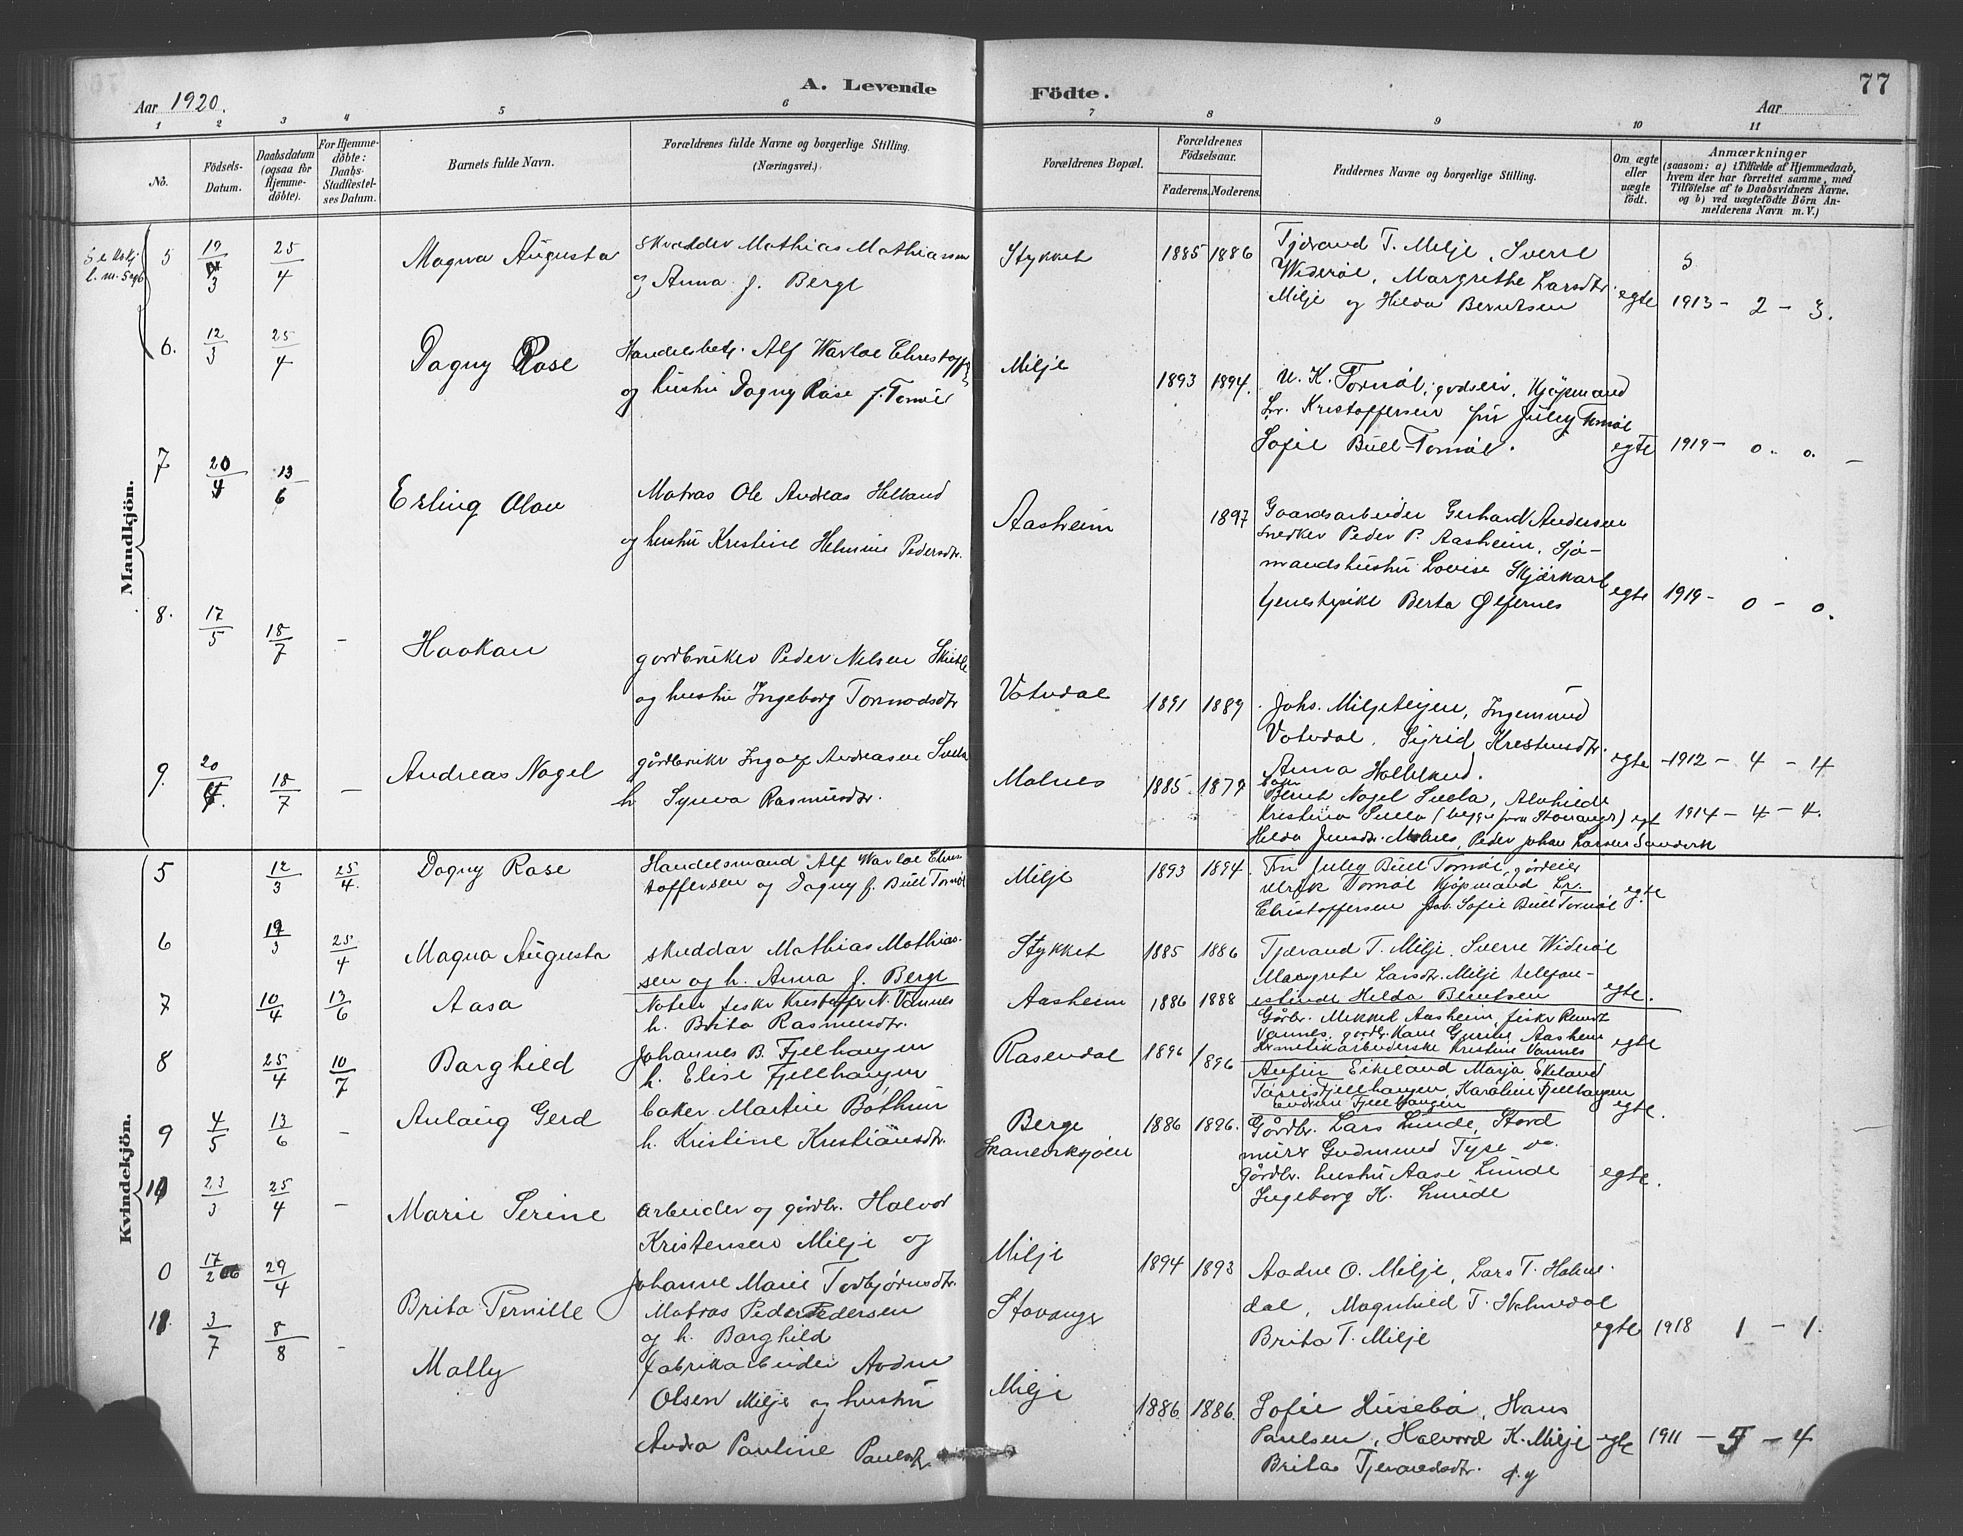 77
A. Levende Födte.
Aar 1920. Aar
1 2 3 4 5 6 7 8 9 10 11
No.
Födsels-Datum.
Daabsdatum (ogsaa for Hjemme-döbte).
For Hjemme-döbte: Daabs-Stadfæstel-ses Datum.
Barnets fulde Navn.
Forældrenes fulde Navne og borgerlige Stilling. (Næringsvei.)
Forældrenes Bopæl.
Forældrenes Födselsaar.
Faderens. Moderens.
Faddernes Navne og borgerlige Stilling.
Om ægte eller uægte födt.
Anmærkninger
(saasom: a) i Tilfælde af Hjemmedaab,
hvem der har forrettet samme, med
Tilföielse af to Daabsvidners Navne,
og b) ved uægtefödte Börn An-
melderens Navn m. V.)
Mandkjön.
5 19/3 25/4 Magna Augusta
Skrædder Mathias Mathiassen
og Anna f. Berge
Stykket 1885 1886
Tjerand T. Milje, Sverre
Widerøe, Margrethe Larsdtr.
Milje og Hilda Berntsen
egte 1913 - 2 - 3.
6. 12/3 25/4 Dagny Rose
Handelsbetj. Alf Warloe Christoff
og hustru Dagny Rose f. Tornøe
Milje 1893 1894.
U. K. Tornøe, godseier, Kjøpmand
Lr. Kristoffersen fru Juley Tornøe
Sofie Bull-Tornøe.
egte 1919 - 0. 0. -
7 20/4 13/6 Erling Olav
Matros Ole Andreas Helland
og hustru Kristine Helmine Pedersdtr.
Aasheim 1897
Gaardsarbeider Gerhard Andersen
Snedker Peder P. Aasheim, Sjø-
mandshustru Lovise
Berta Ølfernes
egte 1919 - 0 - 0.
8. 17/5 18/7 - Haakon
gårdbruker Peder Nilsen
og hustru Ingeborg Tormodsdtr
Votvdal 1891 1889
Johs. Miljeteigen, Ingemund
Votvdal, Sigrid Kristensdtr.
Anna
egte 1912 - 4 - 4
9. 20/ 18/7 - Andreas Nagel
gårdbruker Ingolf Andreasen
h. Synva Rasmusdtr.
Malnes 1885. 1879
Berent Nagel Svela, Alvhilde
Kristina Svela (begge fra Stavanger) egt 1914 - 4 - 4.
Hilda Jensdtr. Malnes, Peder Johan Larsen Sandvik
Kvindekjön.
5 12/3 25/4. Dagny Rose
Handelsmand Alf Warloe Chris
toffersen og Dagny f. Bull Tornøe
Milje 1893 1894.
Fru Juley Bull Tornøe, gårdeier
Ulrik Tornøe Kjøpmand Lr.
Christoffersen frøk. Sofie Bull Tornøe
egte
6 19/3 25/4 Magna Augusta
skreddar Mathias Mathias-
sen og h. Anna f. Berge
Stykket 1885 1886
Tjerand T. Milje, Sverre Widerøe
Margrete Larsdtr. Milje telefon-
istinde Hilda Berntsen
egte.
7 10/4 13/6 Aasa
fiskr Kristoffer N. Vannes
h. Brita Rasmusdtr.
Aasheim 1886 1888
Gårbr. Mikkel Aasheim, fiskr Knut
Vannes, gårdbr. Kone Gurine Aasheim
Hermetikarbeiderske Kristine Vannes
egte
8 25/4 10/7 Borghild
Johannes B. Fjellhaugen
h. Elise Fjellhaugen
Rosendal 1896 1896
Anfin Eikeland Marja Eikeland
Tarris Fjellhaugen, Karoline Fjellhaugen
Endrun Fjellhaugen
egte.
9 4/5 13/6 - Anlaug Gerd
baker Martin Bothun
h. Kristine Kristiansdtr.
Berge Skånevksjøen 1886 1896.
Gårdbr. Lars Lunde, Stord
murer Gudmund Tyse
gårdbr. hustru Aase Lunde
Ingeborg K. Lunde
egte.
10 23/3 25/4 - Marie Serine
arbeider og gårdbr. Halvor
Kristensen Milje og
Johanne Marie Torbjørnsdtr.
Milje 1894 1893
Aadne O. Milje, Lars T. Holme-
dal, Magnhild T. Holmedal
Brita T. Milje
egte 1918 1 - 1.
0 17/2 29/4 Brita Pernille
Matros Peder Pedersen
og h. Borghild
Stavanger
11. 3/7 8/8 - Molly
fabrikarbeider Aadne
Olsen Milje og hustru
Andra Pauline Paulsdtr.
Milje 1886 1886.
Sofie Husebø, Hans
Paulsen, Halvord K. Milje
Brita Tjerandsdtr.
egte 1911 - 5 - 4